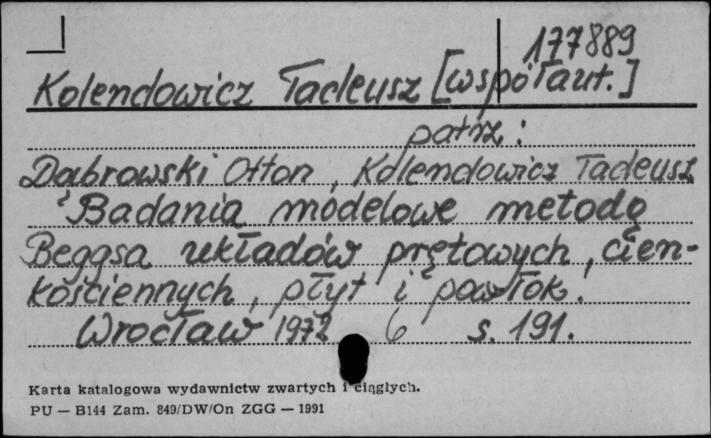 177889
Kolendowicz Tadeusz [współaut.]
patrz:
Dąbrowski Otton, Kolendowicz Tadeusz
Badania modelowe metodą
Beggsa układów prętowych, cien-
kościennych, płyt i powłok.
Wrocław 1972 s. 191.
Karta katalogowa wydawnictw zwartych i ciągłych.
PU — B144 Zam. 849/DW/On ZGG — 1991